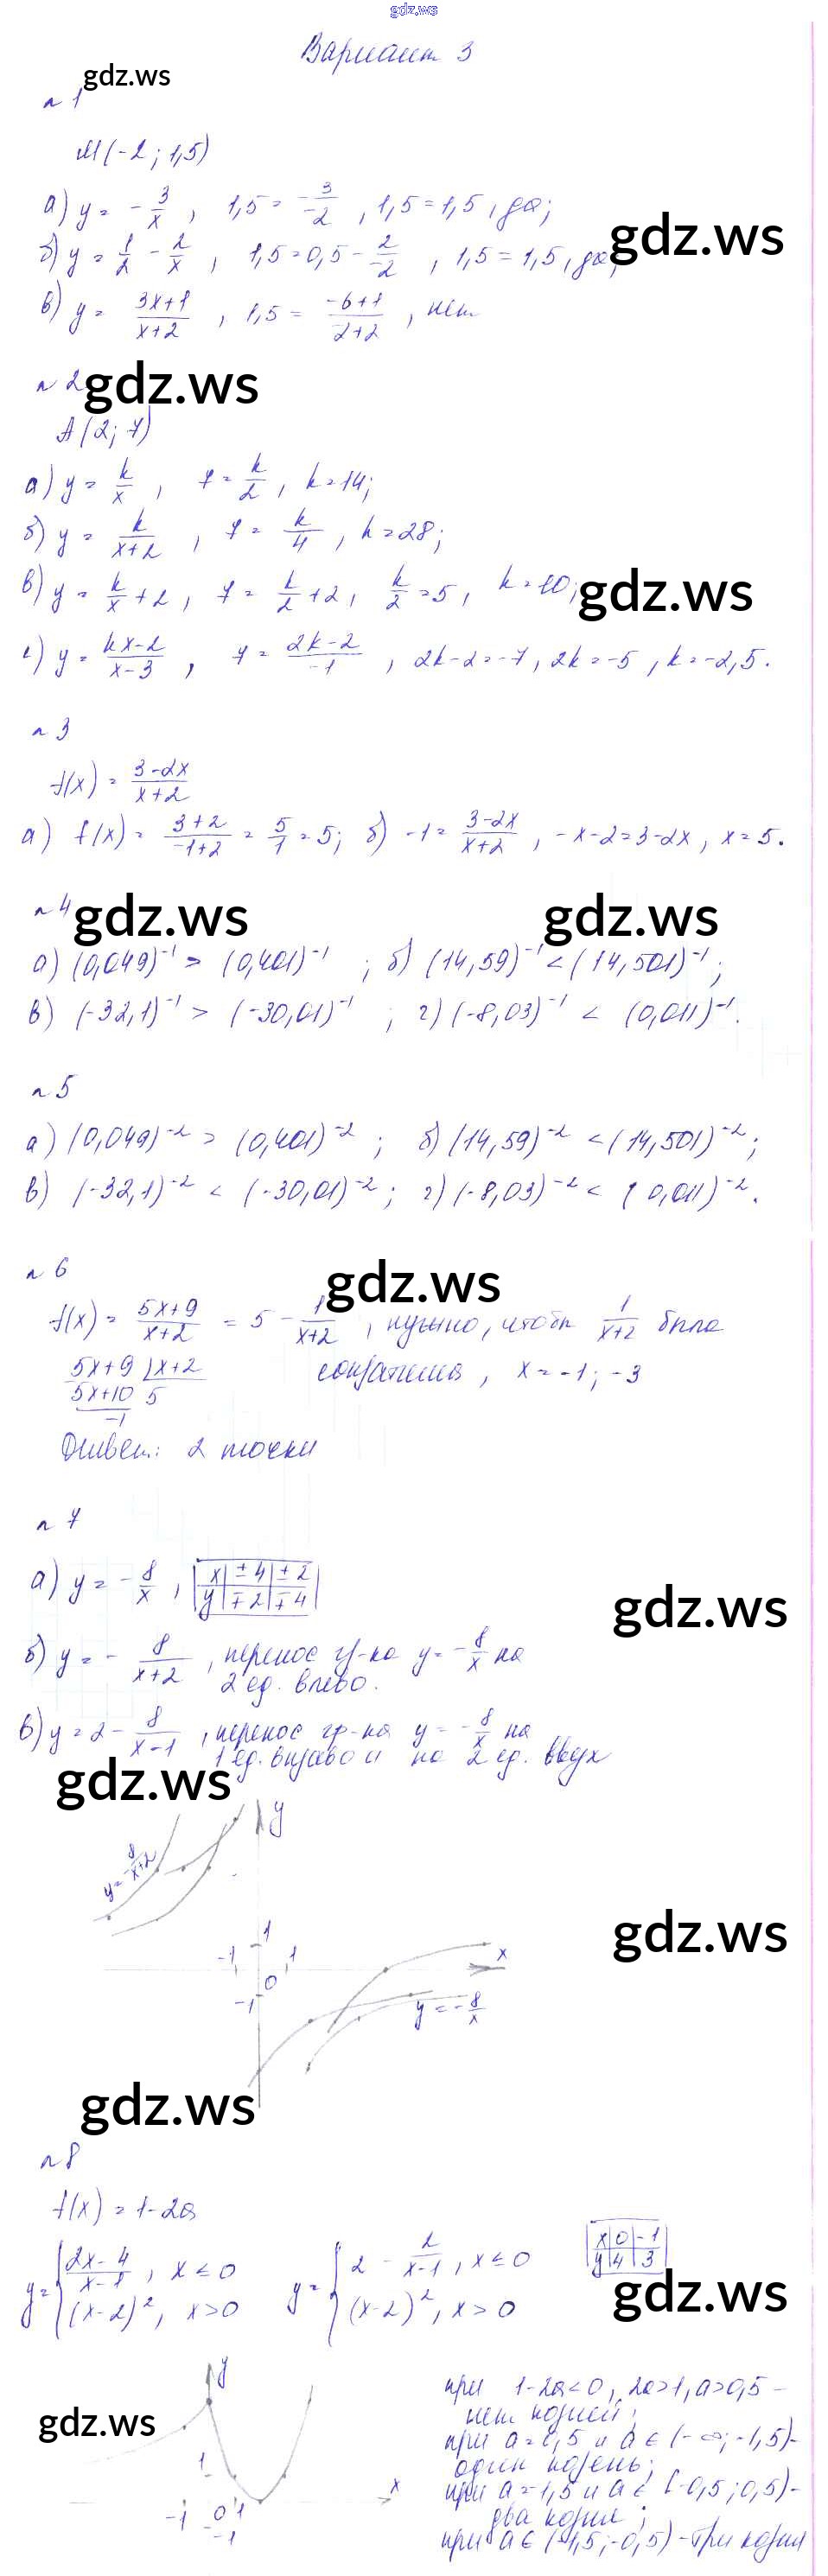 gdz.ws
Вариант 3
gdz.ws
n 1
M(-2; 1,5)
а) y = -3/x, 1,5 = -3/-2, 1,5 = 1,5, да;
gdz.ws
б) y = 1/2 - 2/x, 1,5 = 0,5 - 2/-2, 1,5 = 1,5, да,
в) y = 3x+1/x+2, 1,5 = -6+1/2+2, нет
n 2
gdz.ws
A(2; 7)
а) y = k/x, 7 = k/2, k = 14;
б) y = k/x+2, 7 = k/4, k = 28;
в) y = k/x + 2, 7 = k/2 + 2, k/2 = 5, k = 10;
gdz.ws
г) y = kx-2/x-3, 7 = 2k-2/-1, 2k-2 = -7, 2k = -5, k = -2,5.
n 3
f(x) = 3-2x/x+2
а) f(x) = 3+2/-1+2 = 5/1 = 5; б) -1 = 3-2x/x+2, -x-2 = 3-2x, x = 5.
n 4
gdz.ws gdz.ws
а) (0,049)⁻¹ > (0,401)⁻¹ ; б) (14,59)⁻¹ < (14,501)⁻¹;
в) (-32,1)⁻¹ > (-30,01)⁻¹ ; г) (-8,03)⁻¹ < (0,011)⁻¹.
n 5
а) (0,049)⁻² > (0,401)⁻² ; б) (14,59)⁻² < (14,501)⁻²;
в) (-32,1)⁻² < (-30,01)⁻² ; г) (-8,03)⁻² < (0,011)⁻².
n 6
gdz.ws
f(x) = 5x+9/x+2 = 5 - 1/x+2, нужно, чтобы 1/x+2 была
5x+9 | x+2
5x+10 5
-1
сокращена, x = -1; -3
Ответ: 2 точки
n 7
а) y = -8/x, x | ±4 | ±2
y | ∓2 | ∓4
gdz.ws
б) y = -8/x+2, перенос гр-ка y = -8/x на
2 ед. влево.
в) y = 2 - 8/x-1, перенос гр-ка y = -8/x на
1 ед. вправо и на 2 ед. вверх
gdz.ws
y
y = -8/x+2
gdz.ws
1
-1 1 x
0
-1
y = -8/x
gdz.ws
n 8
f(x) = 1-2a
y = { 2x-4/x-1, x ≤ 0
(x-2)², x > 0
y = { 2 - 2/x-1, x ≤ 0
(x-2)², x > 0
x | 0 | -1
y | 4 | 3
gdz.ws
y
gdz.ws
1
x
-1 0 1
-1
при 1-2a < 0, 2a > 1, a > 0,5 -
нет корней;
при a = 0,5 и a ∈ (-∞; -1,5)-
один корень;
при a = 1,5 и a ∈ [-0,5; 0,5)-
два корня;
при a ∈ (-1,5; -0,5) - три корня